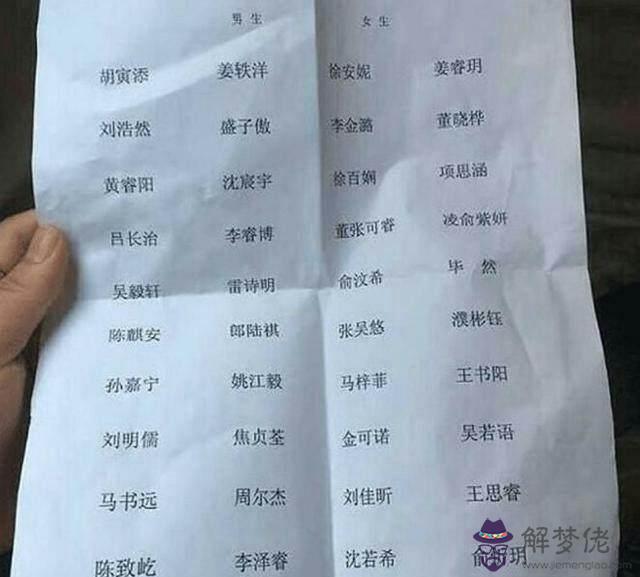 男生 女生
胡寅添 姜轶洋 徐安妮 姜睿玥
刘浩然 盛子傲 李金潞 董晓桦
黄睿阳 沈宸宇 徐百娴 项思涵
吕长治 李睿博 董张可睿 凌俞紫妍
吴毅轩 雷诗明 俞汶希 毕然
陈麒安 郎陆祺 张昊悠 濮彬钰
孙嘉宁 姚江毅 马梓菲 王书阳
刘明儒 焦贞荃 金可诺 吴若语
马书远 周尔杰 刘佳昕 王思睿
陈致屹 李泽睿 沈若希 俞玥
解梦佬
www.jiemenglao.com